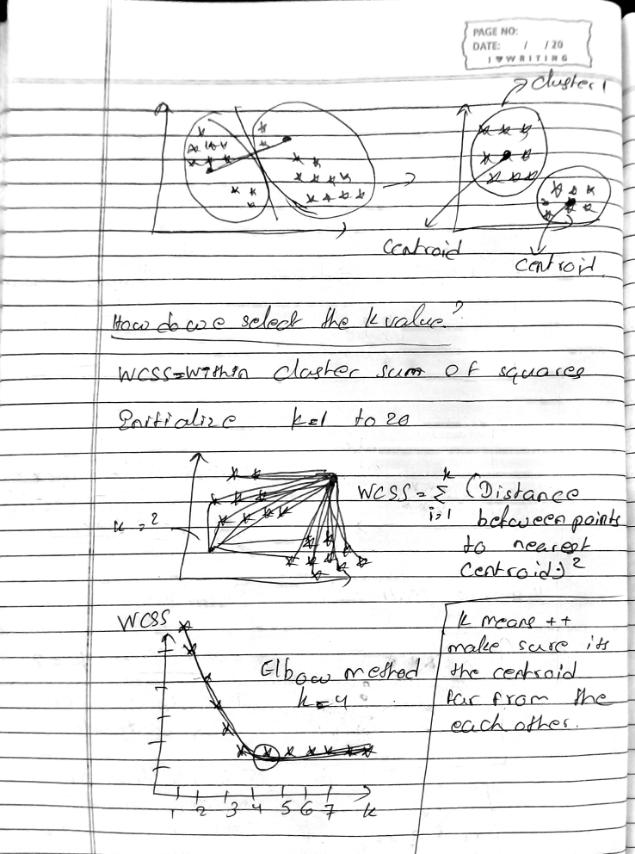 PAGE NO:
DATE: / / 20
I ♥ WRITING
Cluster 1
Centroid
Centroid
How do we select the k value?
WCSS = Within cluster sum of squares
Initialize k=1 to 20
k = 2
WCSS = k Σ i=1 (Distance
between points
to nearest
Centroid)²
WCSS
Elbow method
k=4
1 2 3 4 5 6 7 k
k means ++
make sure its
the centroid
far from the
each other.